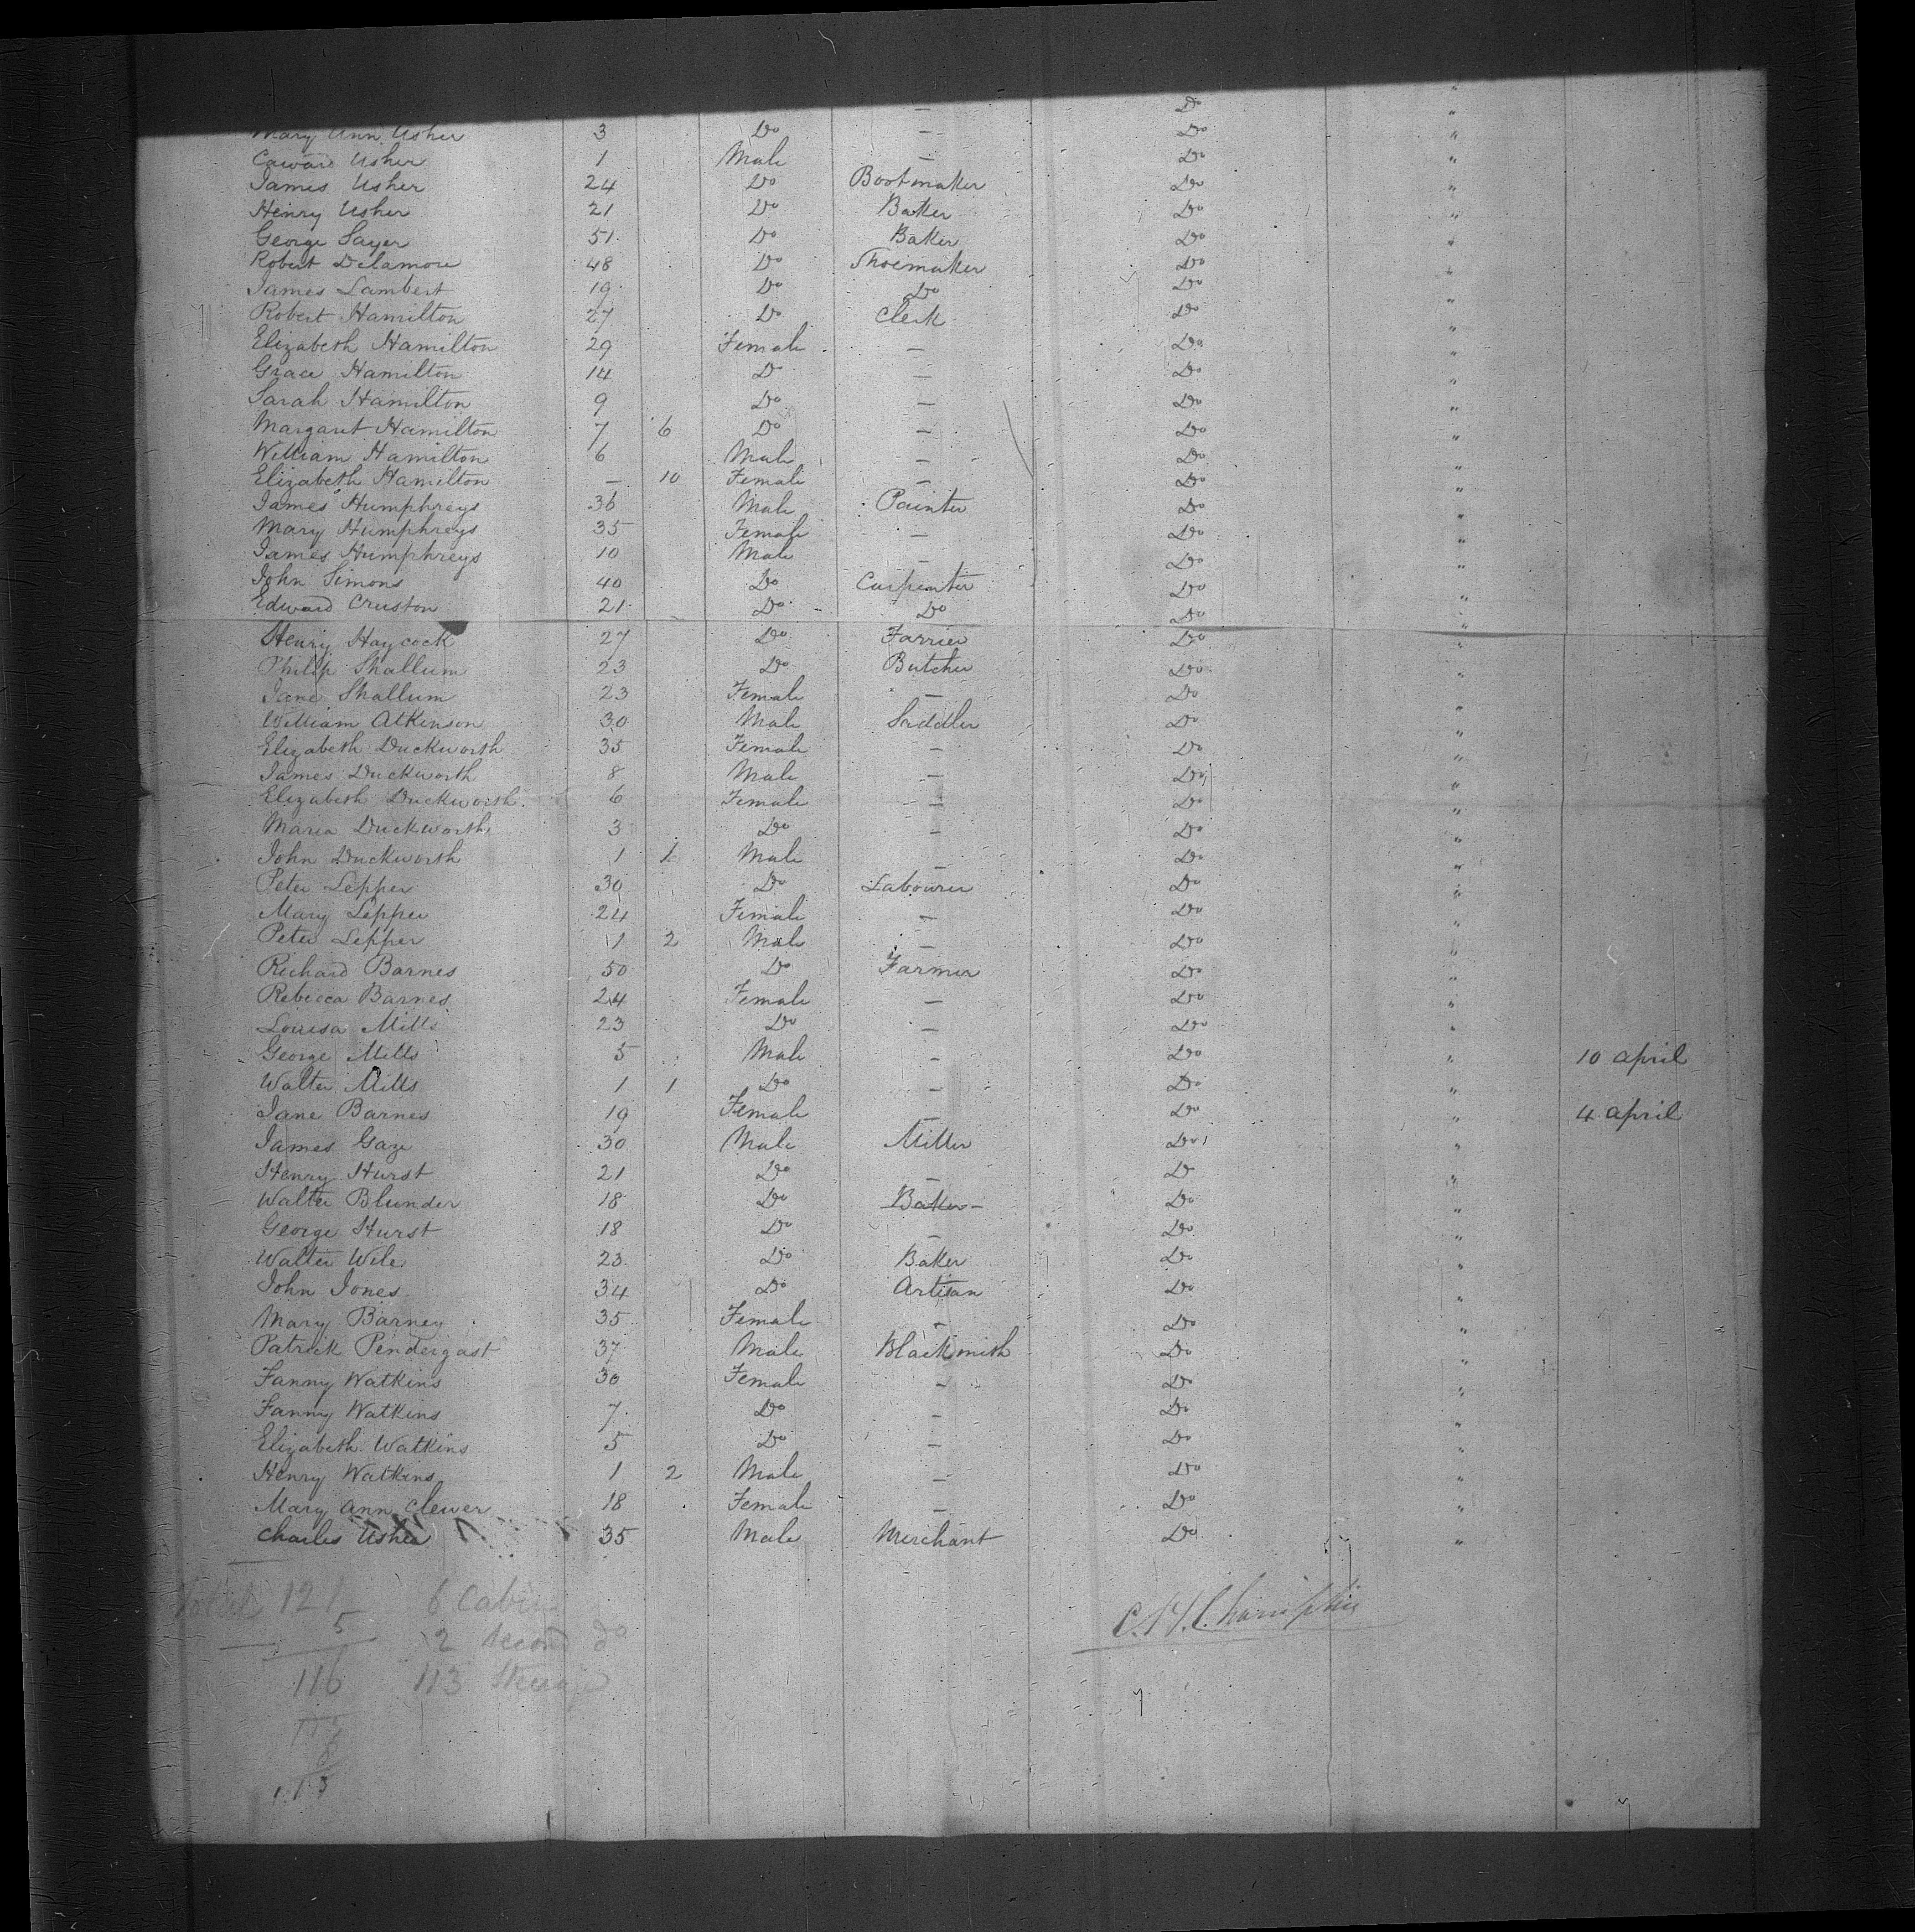 — Do "
Mary Ann Usher 3 Do — Do "
Edward Usher 1 Male — Do "
James Usher 24 Do Bootmaker Do "
Henry Usher 21 Do Baker Do "
George Sayer 51 Do Baker Do "
Robert Delamore 48 Do Shoemaker Do "
James Lambert 19 Do Do Do "
Robert Hamilton 27 Do Clerk Do "
Elizabeth Hamilton 29 Female — Do "
Grace Hamilton 14 D — Do "
Sarah Hamilton 9 Do — Do "
Margaret Hamilton 7 6 Do — Do "
William Hamilton 6 Male — Do "
Elizabeth Hamilton — 10 Female — Do "
James Humphreys 36 Male Painter Do "
Mary Humphreys 35 Female — Do "
James Humphreys 10 Male — Do "
John Simons 40 Do Carpenter Do "
Edward Cruston 21 Do Do Do "
Henry Haycock 27 Do Farrier Do "
Philip Shallum 23 Do Butcher Do "
Jane Shallum 23 Female — Do "
William Atkinson 30 Male Saddler Do "
Elizabeth Duckworth 35 Female — Do "
James Duckworth 8 Male — Do "
Elizabeth Duckworth 6 Female — Do "
Maria Duckworth 3 Do — Do "
John Duckworth 1 1 Male — Do "
Peter Lepper 30 Do Labourer Do "
Mary Lepper 24 Female — Do "
Peter Lepper 1 2 Male — Do "
Richard Barnes 50 Do Farmer Do "
Rebecca Barnes 24 Female — Do "
Louisa Mills 23 Do — Do "
George Mills 5 Male — Do " 10 april
Walter Mills 1 1 Do — Do "
Jane Barnes 19 Female — Do " 4 april
James Gaze 30 Male Miller Do "
Henry Hurst 21 Do — D "
Walter Blunder 18 Do Baker Do "
George Hurst 18 Do — Do "
Walter Wile 23 Do Baker Do "
John Jones 34 Do Artisan Do "
Mary Barney 35 Female — Do "
Patrick Pendergast 37 Male Blacksmith Do "
Fanny Watkins 30 Female — Do "
Fanny Watkins 7 Do — Do "
Elizabeth Watkins 5 Do — Do "
Henry Watkins 1 2 Male — Do "
Mary Ann Clewer 18 Female — Do "
Charles Usher 35 Male Merchant Do "
Total 121 6 Cabin
5 2 Second do
116 113 Steerage
C. H. Champlin
113